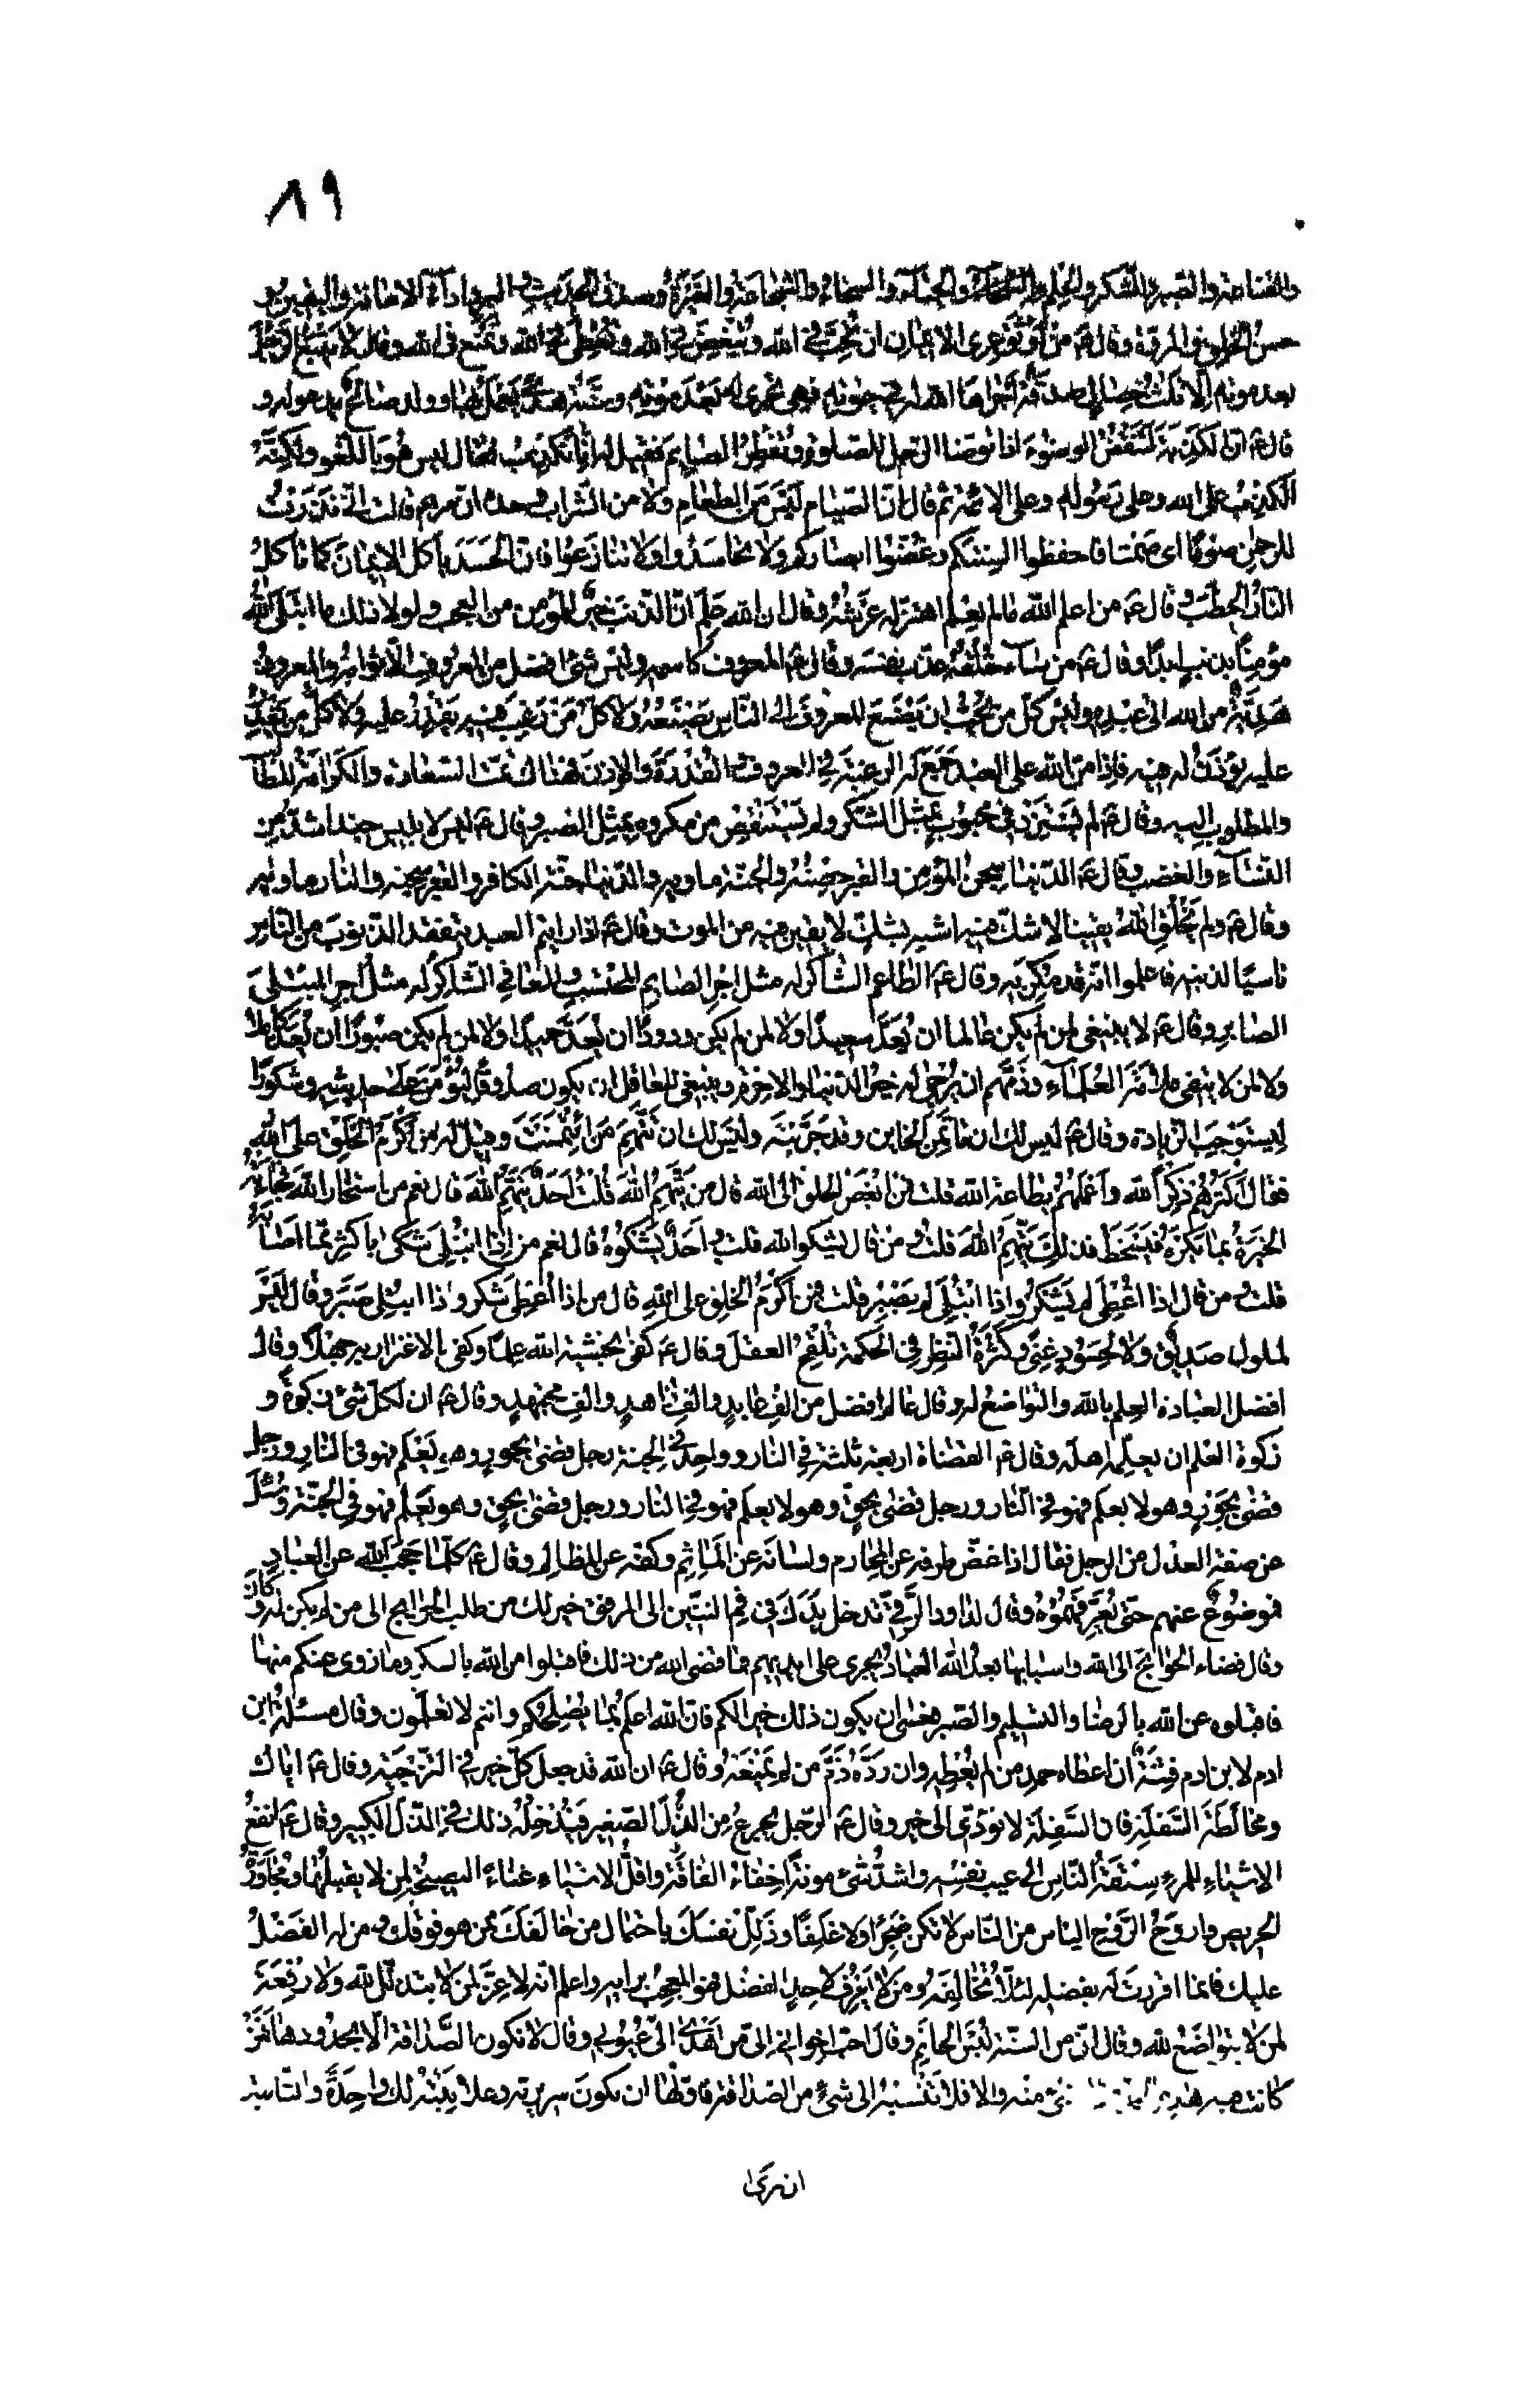 ٨٩
والقناعة والصبر والشكر والحلم والحياء والسخاء والشجاعة والغيرة وصدق الحديث والبر واداء الامانة واليقين و
حسن الخلق والمروة وقال ع من اوثق عرى الايمان ان تحب في الله وتبغض في الله وتعطى في الله وتمنع في الله وقال لا يتبع الرجل
بعد موته الا ثلث خصال صدقة اجراها الله له في حيوته فهى تجرى له بعد موته وسنة هدى يعمل بها وولد صالح يدعو له و
قال ع ان الكذبة لتنقض الوضوء اذا توضا الرجل للصلوة وتفطر الصايم فقيل له انا نكذب فقال ليس هو باللغو ولكنه
الكذب على الله وعلى رسوله وعلى الائمة ثم قال ان الصيام ليس من الطعام ولا من الشراب وحده ان مريم قالت انى نذرت
للرحمن صوما اى صمتا فاحفظوا السنتكم وغضوا ابصاركم ولا تحاسدوا ولا تنازعوا فان الحسد ياكل الايمان كما تاكل
النار الحطب وقال ع من اعلم الله مالم يعلم اهتز له عرشه وقال ان الله علم ان الذنب خير للمؤمن من العجب ولولا ذلك ما ابتلى الله
مؤمنا بذنب ابدا وقال ع من ساء خلقه عذب نفسه وقال ع المعروف كاسمه وليس شئ افضل من المعروف الا ثوابه والمعروف
هدية من الله الى عبده وليس كل من يحب ان يصنع المعروف الى الناس يصنعه ولا كل من رغب فيه يقدر عليه ولا كل من يقدر
عليه يؤذن له فيه فاذا من الله على العبد جمع له الرغبة في المعروف والقدرة والاذن فهناك تمت السعادة والكرامة للطالب
والمطلوب اليه وقال ع لم يستزد في محبوب بمثل الشكر ولم يستنقص من مكروه بمثل الصبر وقال ع ليس لابليس جند اشد من
النساء والغضب وقال ع الدنيا سجن المؤمن والقبر حصنه والجنة ماويه والدنيا جنة الكافر والقبر سجنه والنار ماويه
وقال ع ولم يخلق الله يقينا لا شك فيه اشبه بشك لا يقين فيه من الموت وقال ع اذا رايتم العبد يتفقد الذنوب من الناس
ناسيا لذنبه فاعلموا انه قد مكر به وقال ع الطاعم الشاكر له مثل اجر الصايم المحتسب والمعافى الشاكر له مثل اجر المبتلى
الصابر وقال ع لا ينبغى لمن لم يكن عالما ان يعد سعيدا ولا لمن لم يكن ودودا ان يعد حميدا ولا لمن لم يكن صبورا ان يعد كاملا
ولا لمن لا يتقى ملامة العلماء وذمهم ان يرجى له خير الدنيا والاخرة وينبغى للعاقل ان يكون صدوقا ليؤمن على حديثه وشكورا
ليستوجب الزيادة وقال ع ليس لك ان تاتمن الخاين وقد جربته وليس لك ان تتهم من ائتمنت وقيل له من اكرم الخلق على الله
فقال اكثرهم ذكرا لله واعملهم بطاعة الله قلت فمن ابغض الخلق الى الله قال من يتهم الله قلت احد يتهم الله قال نعم من استخار الله فجاءته
الخيرة بما يكره فيسخط فذلك يتهم الله قلت ومن قال يشكو الله قلت واحد يشكوه قال نعم من اذا ابتلى شكى باكثر مما اصابه
قلت ومن قال اذا اعطى لم يشكر واذا ابتلى لم يصبر قلت فمن اكرم الخلق على الله قال من اذا اعطى شكر واذا ابتلى صبر وقال ليس
لملول صديق ولا لحسود غنى وكثرة النظر في الحكمة تلقح العقل وقال ع كفى بخشية الله علما وكفى بالاغترار به جهلا وقال
افضل العبادة العلم بالله والتواضع له وقال عالم افضل من الف عابد والف زاهد والف مجتهد وقال ع ان لكل شئ زكوة و
زكوة العلم ان يعلمه اهله وقال ع القضاة اربعة ثلثة في النار وواحد في الجنة رجل قضى بجور وهو يعلم فهو في النار ورجل
قضى بجور وهو لا يعلم فهو في النار ورجل قضى بحق وهو لا يعلم فهو في النار ورجل قضى بحق وهو يعلم فهو في الجنة وسئل
عن صفة العدل من الرجل فقال اذا غض طرفه عن المحارم ولسانه عن الماثم وكفه عن المظالم وقال ع كلما حجب الله عن العباد
فموضوع عنهم حتى يعرفهموه وقال لداود الرقى تدخل يدك في فم التنين الى المرفق خير لك من طلب الحوايج الى من لم يكن له وكان
وقال قضاء الحوايج الى الله واسبابها بعد الله العباد يجرى على ايديهم فما قضى الله من ذلك فاقبلوا من الله بالشكر وما زوى عنكم منها
فاقبلوه عن الله بالرضا والتسليم والصبر فعسى ان يكون ذلك خيرا لكم فان الله اعلم بما يصلحكم وانتم لا تعلمون وقال مسئلة ابن
ادم لابن ادم فتنة ان اعطاه حمد من لم يعطه وان رده ذم من لم يمنعه وقال ع ان الله قد جعل كل خير في التزجية وقال ع اياك
ومخالطة السفلة فان السفلة لا تؤدى الى خير وقال ع الرجل يجزع من الذل الصغير فيدخله ذلك في الذل الكبير وقال ع انفع
الاشياء للمرء سبقه الناس الى عيب نفسه واشد شئ مونة اخفاء الفاقة واقل الاشياء غناء النصيحة لمن لا يقبلها ومجاورة
الحريص واروح الروح الياس من الناس لا تكن ضجرا ولا غلقا وذلل نفسك باحتمال من خالفك ممن هو فوقك ومن له الفضل
عليك فانما اقررت له بفضله لئلا تخالفه ومن لا يعرف لاحد الفضل فهو المعجب برايه واعلم انه لا عز لمن لا يتذلل لله ولا رفعة
لمن لا يتواضع لله وقال ان من السنة لبس الخاتم وقال احب اخوانى الى من اهدى الى عيوبى وقال لا تكون الصداقة الا بحدودها فمن
كانت فيه هذه شئ منه والا فلا تنسبه الى شئ من الصداقة فاولها ان تكون سريرته وعلانيته لك واحدة والثانية
ان يرى